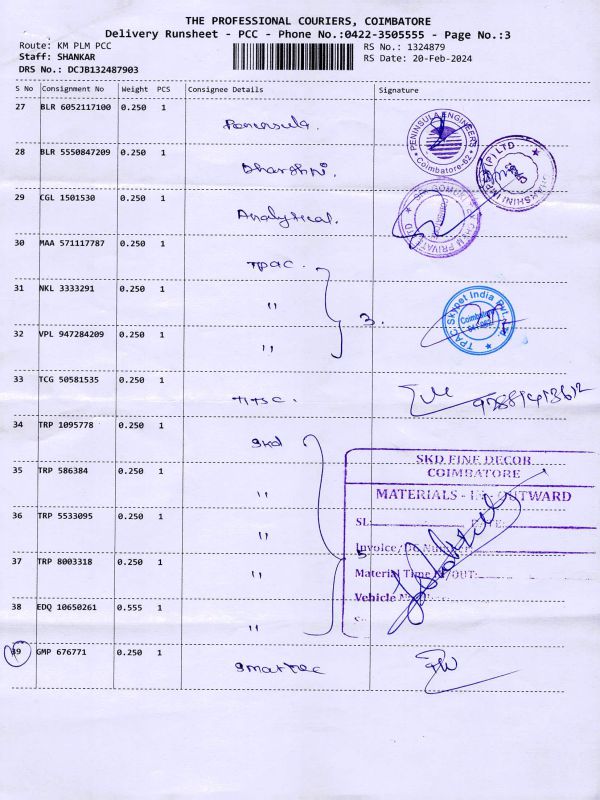 THE PROFESSIONAL COURIERS, COIMBATORE
Delivery Runsheet - PCC - Phone No.:0422-3505555 - Page No.:3
Route: KM PLM PCC
RS No.: 1324879
Staff: SHANKAR
RS Date: 20-Feb-2024
DRS No.: DCJB132487903
S No Consignment No Weight PCS Consignee Details Signature
27 BLR 6052117100 0.250 1
PENINSULA ENGINEERS
Coimbatore-62
28 BLR 5550847209 0.250 1
Dharshni.
29 CGL 1501530 0.250 1
Analytical.
30 MAA 571117787 0.250 1
Tpac.
31 NKL 3333291 0.250 1
"
3.
TPAC Skypet India Pvt.
Coimbatore
32 VPL 947284209 0.250 1
"
33 TCG 50581535 0.250 1
34 TRP 1095778 0.250 1
Skd
SKD FINE DECOR
COIMBATORE
35 TRP 586384 0.250 1
"
MATERIALS - IN - OUTWARD
36 TRP 5533095 0.250 1
"
SL: DATE:
5
Invoice/DC Number
37 TRP 8003318 0.250 1
"
Material Time IN/OUT:
Vehicle
38 EDQ 10650261 0.555 1
"
39 GMP 676771 0.250 1